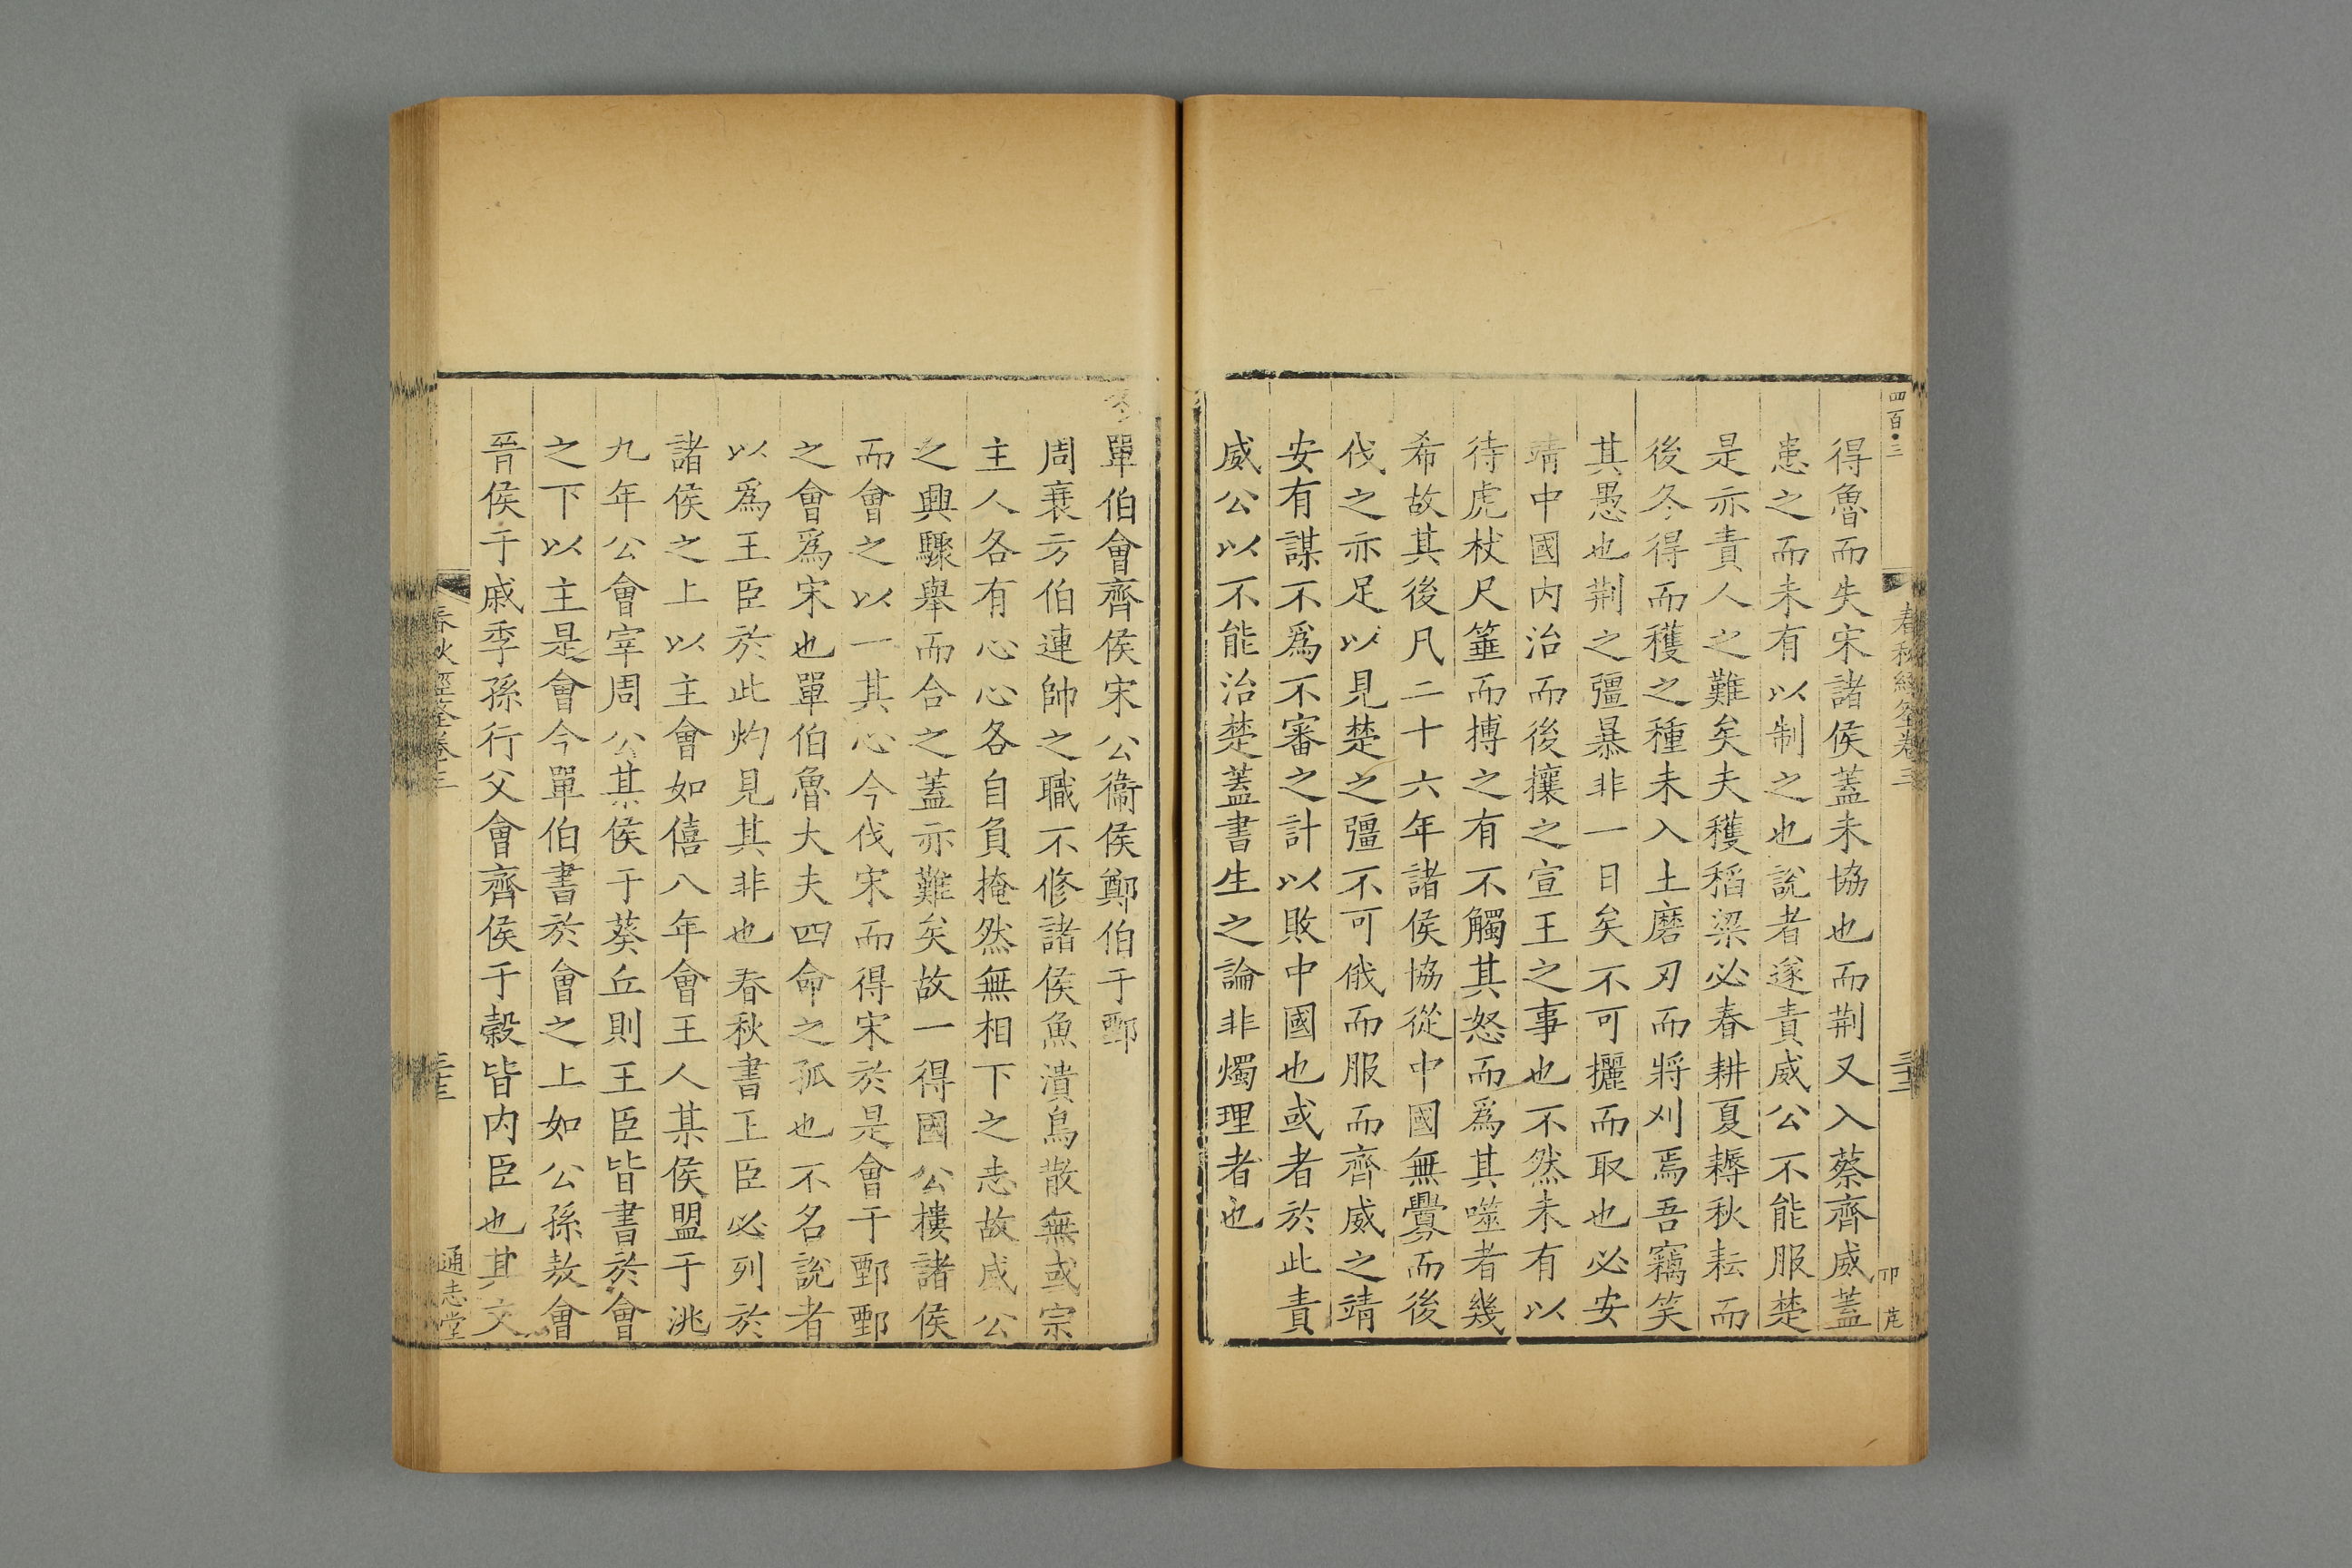 四百三
春秋經筌卷三
得魯而失宋諸侯蓋未協也而荆又入蔡齊威蓋
患之而未有以制之也說者遂責威公不能服楚
是亦責人之難矣夫穫稻粱必春耕夏耨秋耘而
後冬得而穫之種未入土磨刃而將刈焉吾竊笑
其愚也荆之彊暴非一日矣不可攦而取也必安
靖中國内治而後攘之宣王之事也不然未有以
待虎杖尺箠而搏之有不觸其怒而爲其噬者幾
希故其後凡二十六年諸侯協從中國無釁而後
伐之亦足以見楚之彊不可俄而服而齊威之靖
安有謀不爲不審之計以敗中國也或者於此責
威公以不能治楚蓋書生之論非燭理者也
冬單伯會齊侯宋公衞侯鄭伯于鄄
周衰方伯連帥之職不修諸侯魚潰鳥散無或宗
主人各有心心各自負掩然無相下之志故威公
之興驟舉而合之蓋亦難矣故一得國公摟諸侯
而會之以一其心今伐宋而得宋於是會于鄄鄄
之會爲宋也單伯魯大夫四命之孤也不名說者
以爲王臣於此灼見其非也春秋書王臣必列於
諸侯之上以主會如僖八年會王人某侯盟于洮
九年公會宰周公某侯于葵丘則王臣皆書於會
之下以主是會今單伯書於會之上如公孫敖會
晉侯于戚季孫行父會齊侯于榖皆内臣也其文
春秋經筌卷三
通志堂